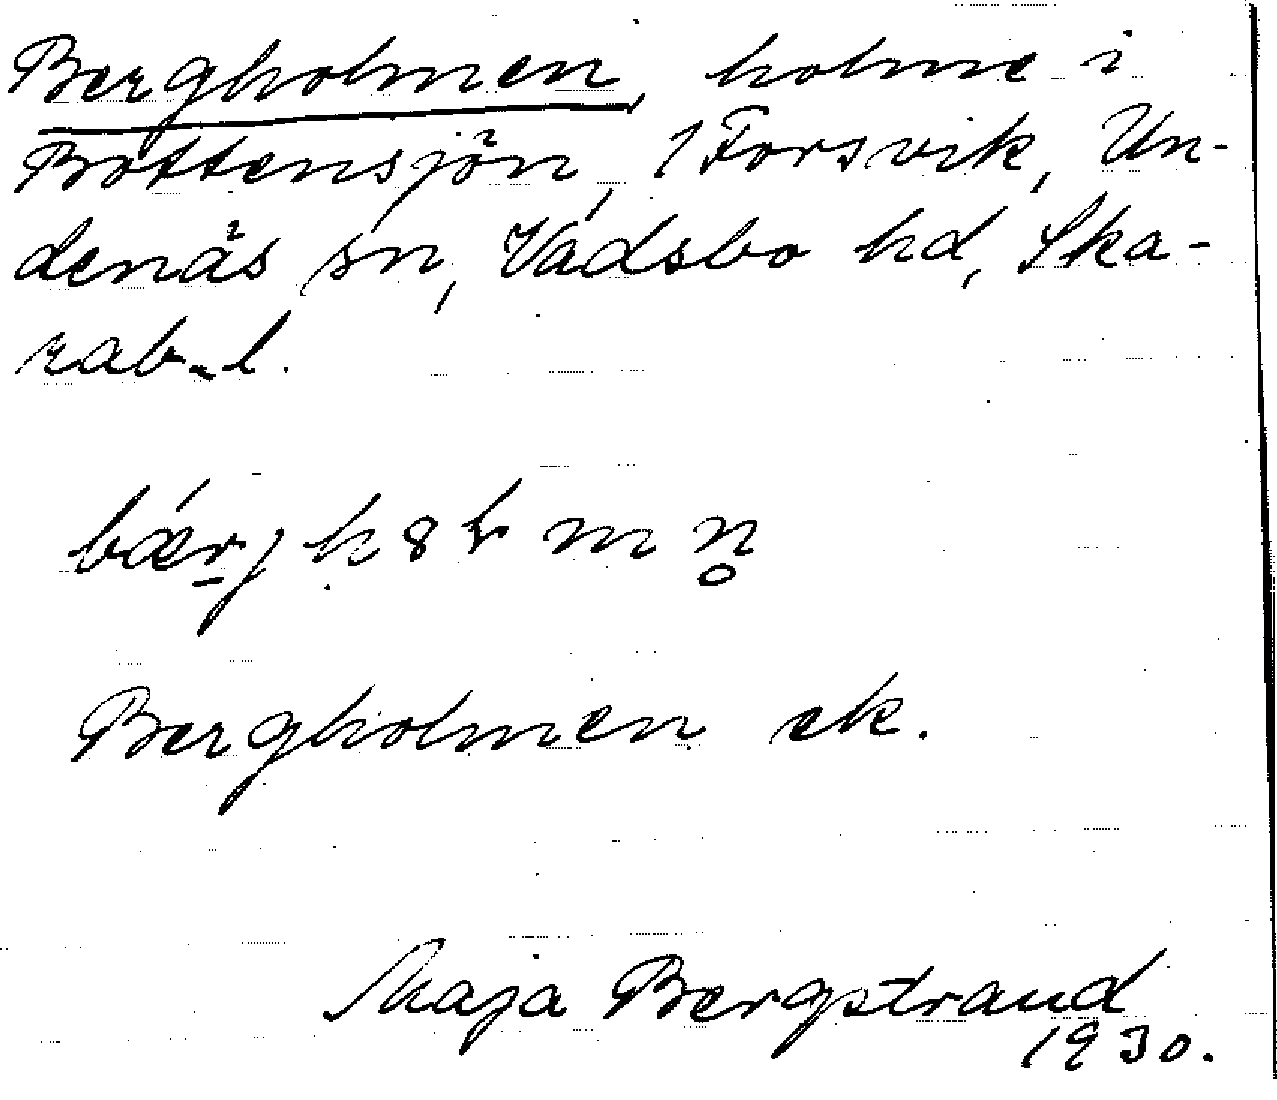 Bergholmen, holme i
Bottensjön, 1 Forsvik, Un-
denäs sn, Vadsbo hd, Ska-
rab. l.
Bergholmen ek.
Maja Bergstrand
1930.